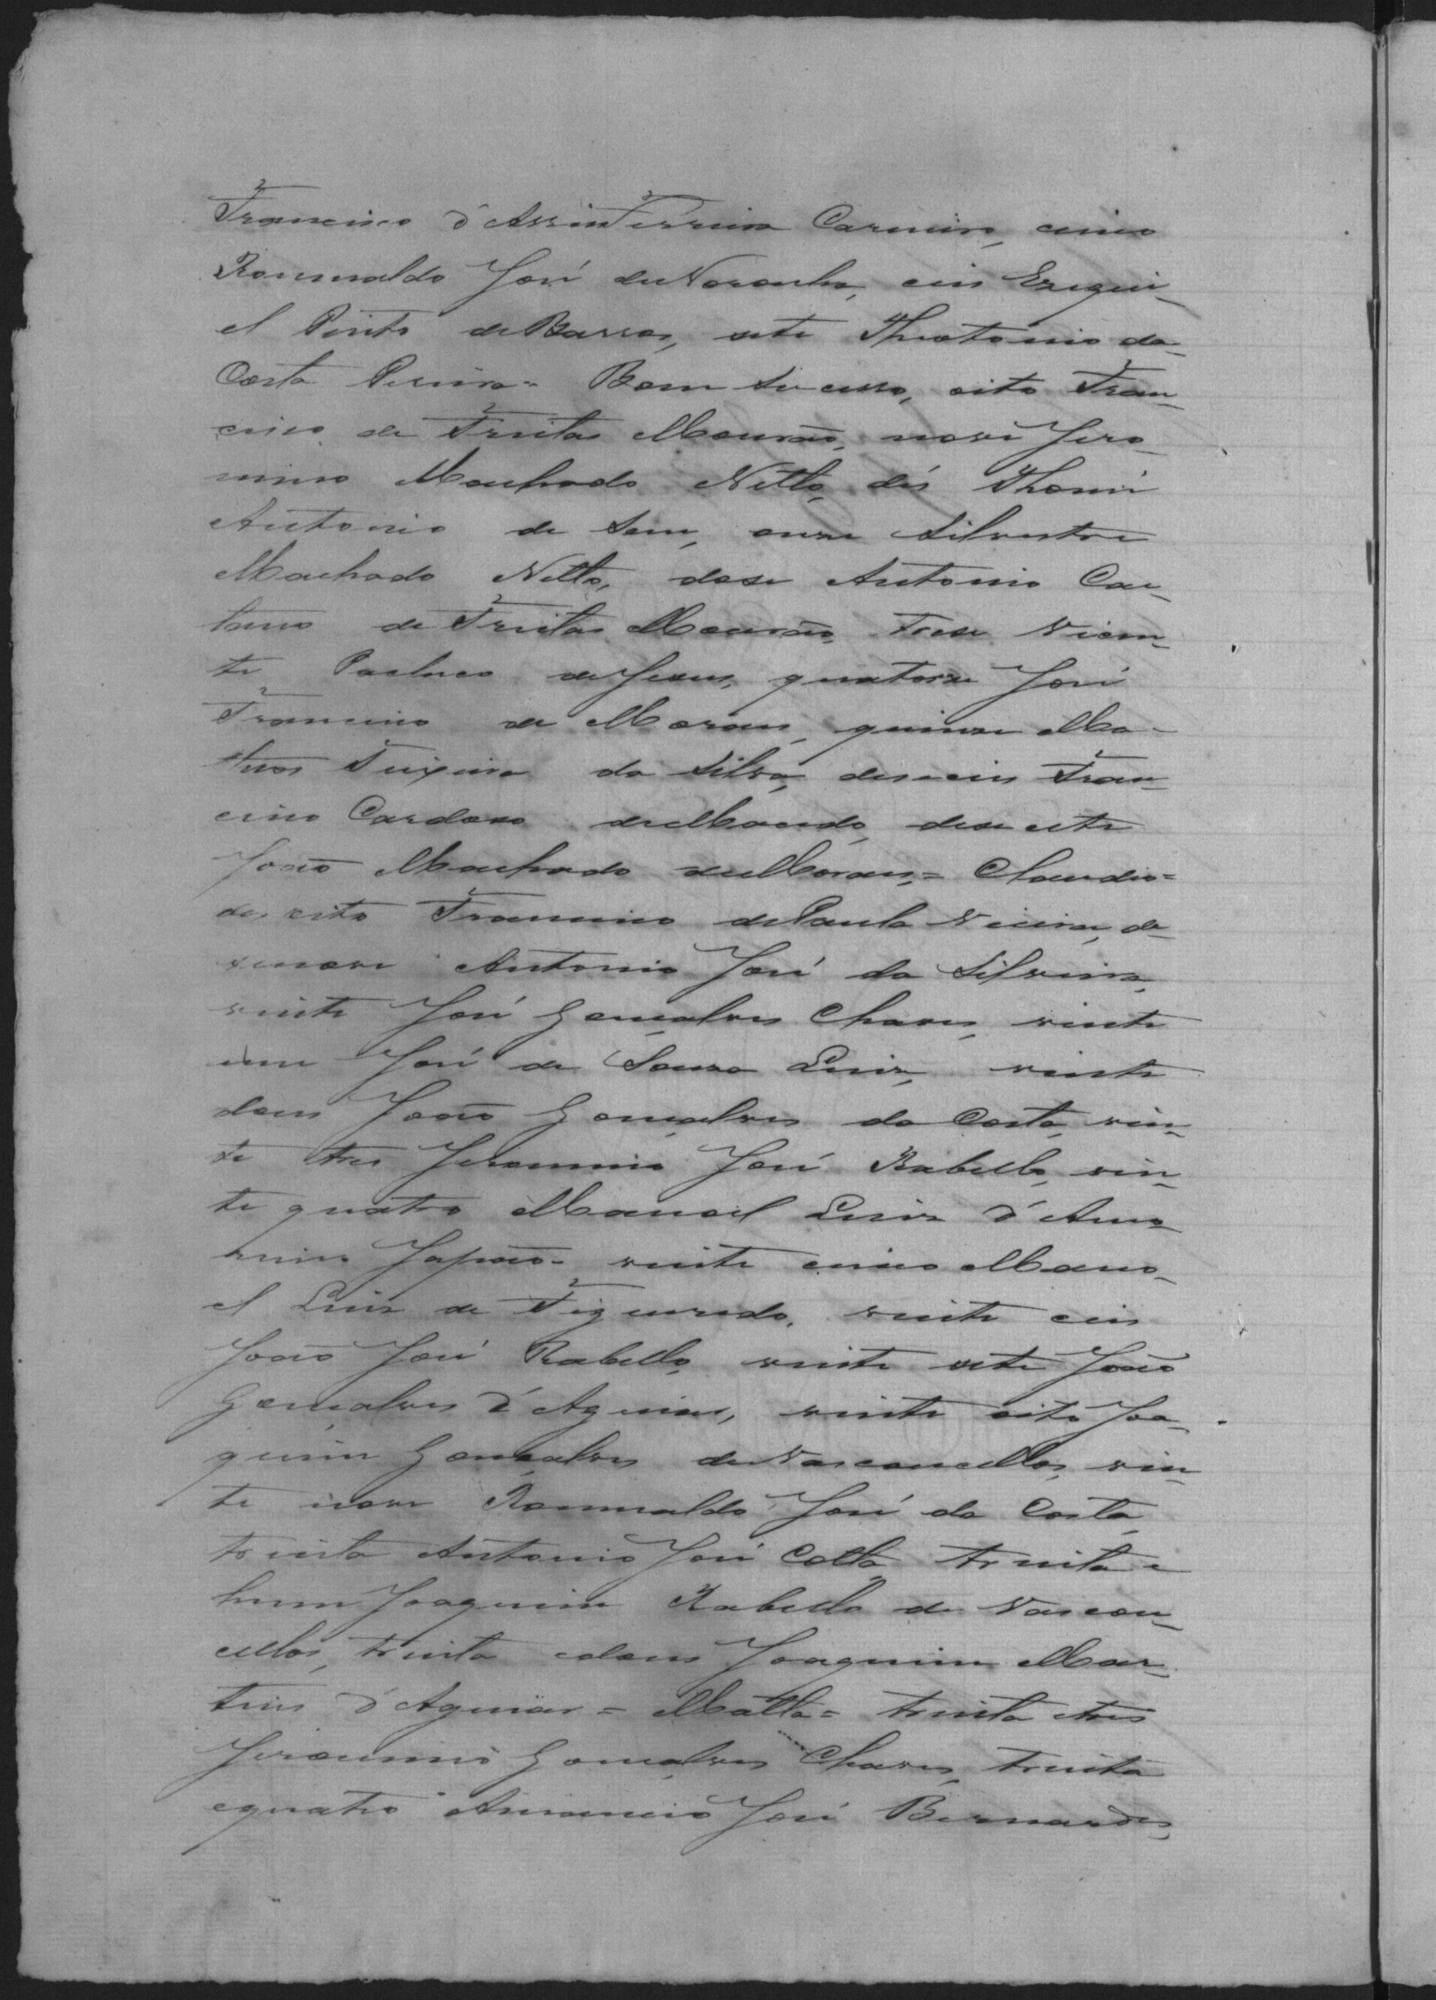 Francisco d'Assis Ferreira Carneiro, cinco
Romualdo José de Noronha, ceis Ezequi-
el Pinto de Barros, sete Theotonio da
Costa Pereira = Bom Sucesso, oito Fran-
cisco de Freitas Mourão, nove Jero-
nimo Machado Netto, dés Thomé
Antonio de Sene, onze Silvestre
Machado Netto, dose Antonio Cae-
tano de Freitas Mourão, trese Vicen-
te Pacheco de Jesus, quatorze José
Francisco de Moraes, quinze Ma-
theos Teixeira da Silva, deseceis Fran-
cisco Cardoso de Macedo, desesete
João Machado de Moraes, = Claudio =
desoito Francisco de Paula Vieira, de-
zenove Antonio José da Silveira,
vinte José Gonçalves Chaves, vinte
um José de Souza Luiz, vinte
dous João Gonçalves da Costa, vin-
te tres Jeronimo José Rabello, vin-
te quatro Manoel Luiz d'Amo-
rim Japão = vinte cinco Mano-
el Luiz de Figueredo, vinte ceis
João José Rabello, vinte sete João
Gonçalves d'Aguiar, vinte oito Joa-
quim Gonçalves de Vasconcellos, vin-
te nove Romualdo José da Costa,
trinta Antonio José Cotta, trinta e
hum Joaquim Rabello de Vascon-
cellos, trinta edous Joaquim Mar-
tins d'Aguiar = Matta = trinta etres
Jeronimo Gonçalves Chaves, trinta
equatro Amancio José Bernardes,